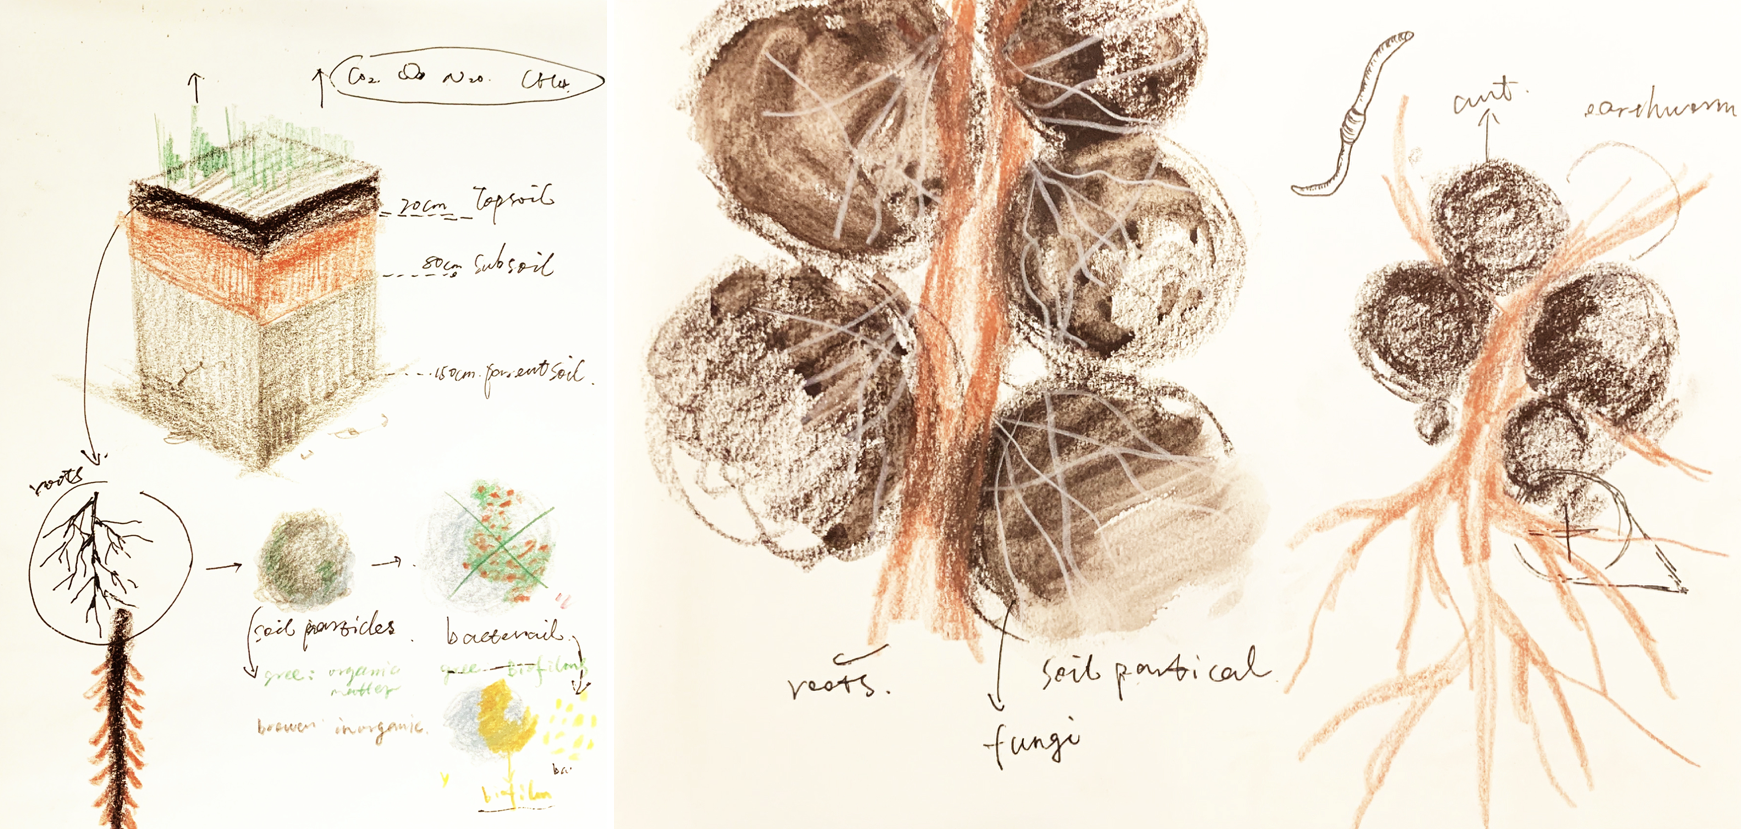 CO2 N2O. CH4.
20cm Topsoil
80cm Subsoil
150cm parentsoil.
roots
soil particles.
green: organic
matter
brown: inorganic.
bacterail.
green biofilms
ba.
biofilm
roots.
soil partical
fungi
ant.
earthworm